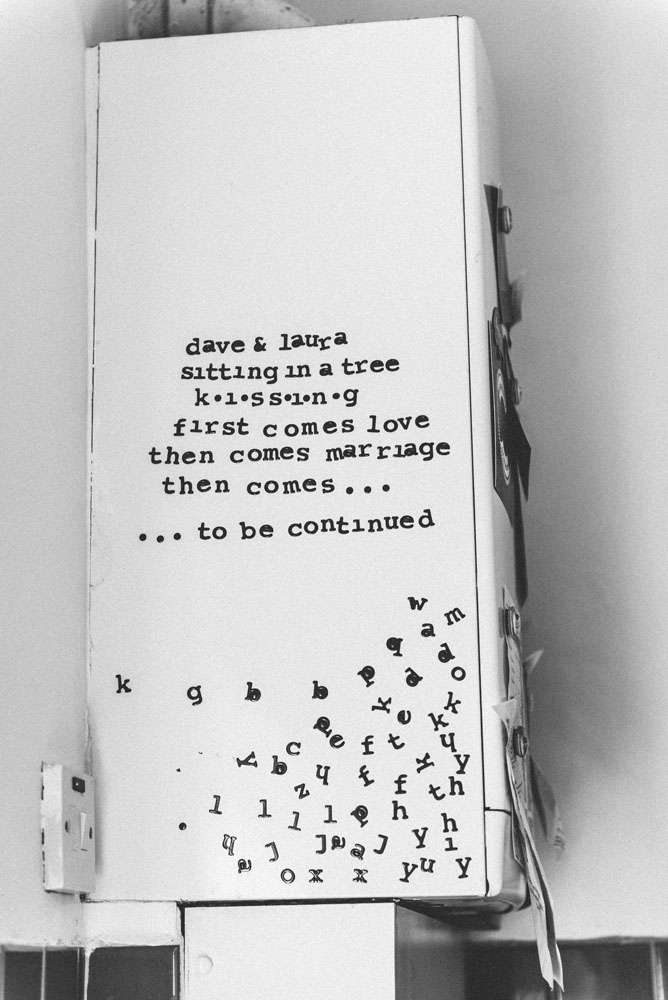 dave & laura
sitting in a tree
k•i•s s•i•n•g
first comes love
then comes marriage
then comes...
... to be continued